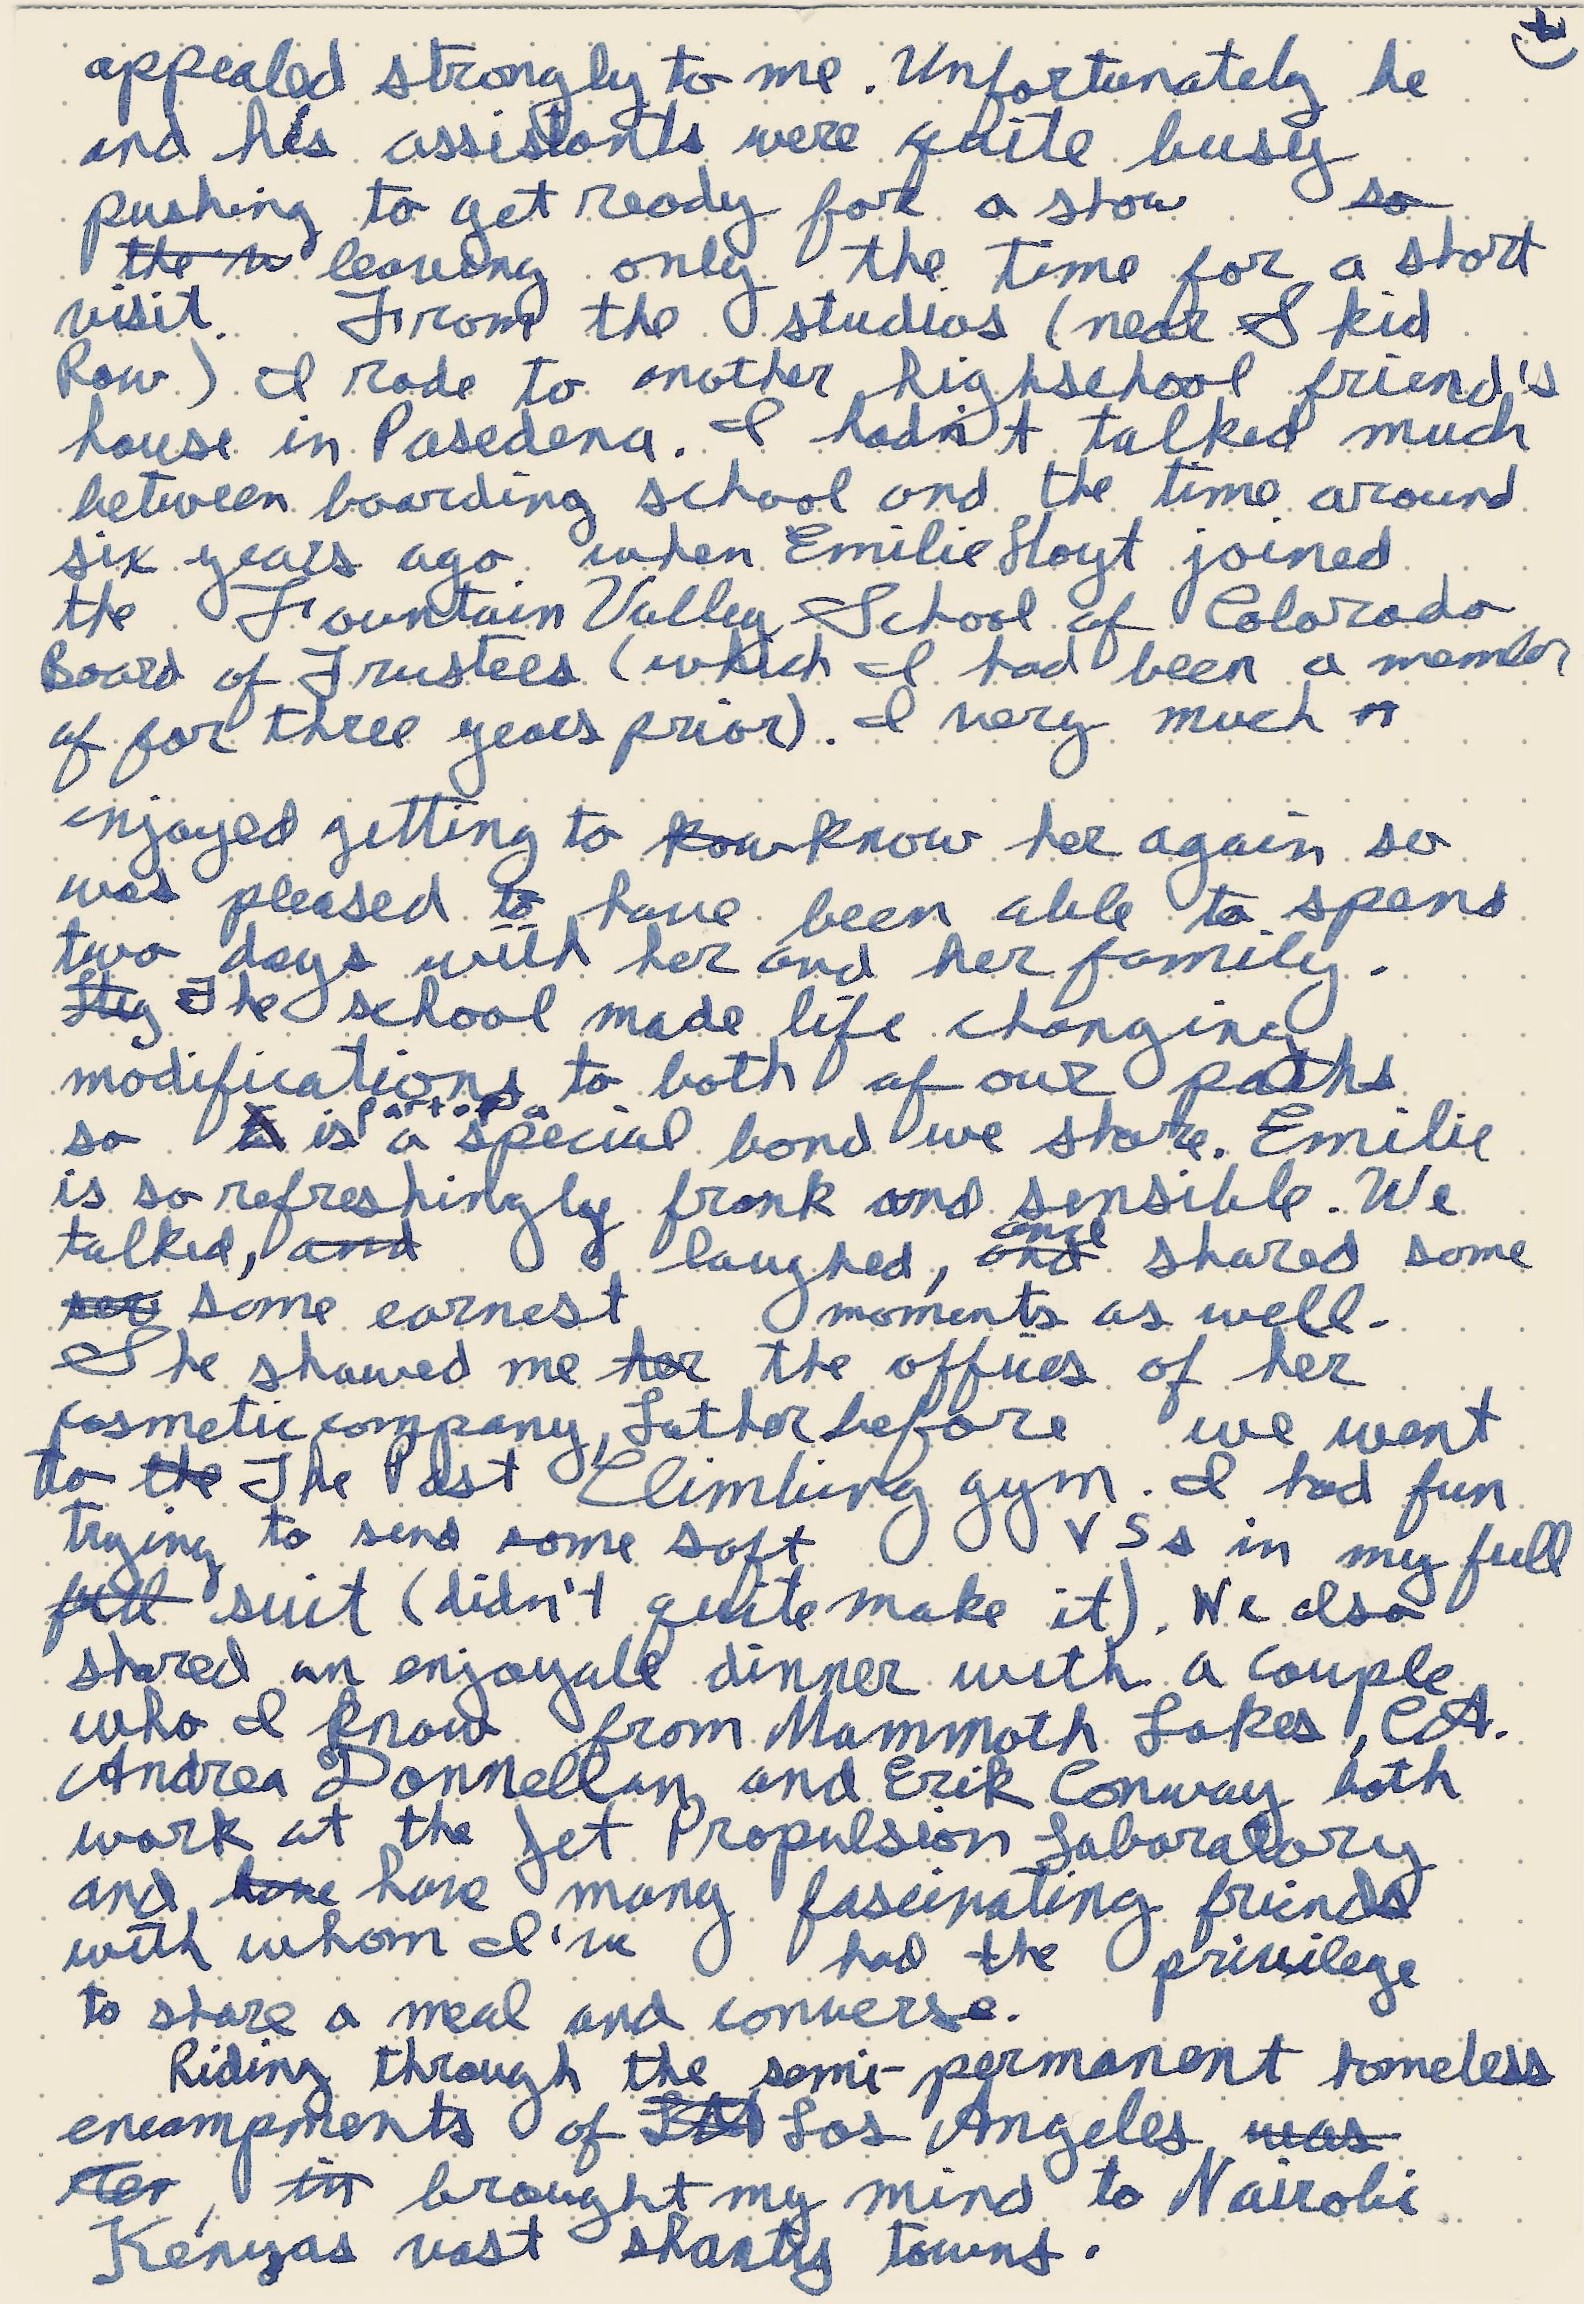 appealed strongly to me. Unfortunately he
and his assistants were quite busy
pushing to get ready for a show so
the leaving only the time for a short
visit. From the studios (near Skid
Row) I rode to another highschool friend's
house in Pasedena. I hadn't talked much
between boarding school and the time around
six years ago when Emilie Hoyt joined
the Fountain Valley School of Colorado
Board of Trustees (which I had been a member
of for three years prior). I very much
enjoyed getting to kow know her again so
was pleased to have been able to spend
two days with her and her family.
The school made life changing
modifications to both of our paths
so is part of a special bond we share. Emilie
is so refreshingly frank and sensible. We
talked, and laughed, and and shared some
some earnest moments as well.
She showed me her the offices of her
cosmetic company, Lather before we went
to the The Post Climbing gym. I had fun
trying to send some soft V5s in my full
full suit (didn't quite make it). We also
shared an enjoyale dinner with a couple
who I know from Mammoth Lakes, CA.
Andrea Donnellan and Erik Conway both
work at the Jet Propulsion Laboratory
and have have many fascinating friends
with whom I've had the privilege
to share a meal and converse.
Riding through the semi-permanent homeless
encampments of Los Angeles was
, in brought my mind to Nairobi
Kenyas vast shanty towns.